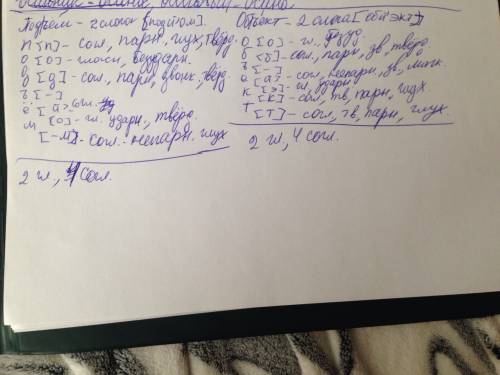 Подъём - 2 слога [подйом].
п [п] - согл., парн, глух, твёрд.
о [о] - гласн, безударн.
д [д] - сол, парн, звонк, твёрд.
ъ [-]
ё [й] согл.
[о] - гл. ударн., твёрд.
м [-м] - согл. непарн. глух
2 гл, 4 согл.
Объект - 2 слога [объэкт]
о [о] - гл.,
б [б] - сол, парн, зв, твёрд.
ъ [-]
е [й] - сол, непарн, зв, мягк.
[э] - гл, ударн
к [к] - сол, тв, парн, глух.
т [т] - согл, тв, парн, глух.
2 гл, 4 согл.